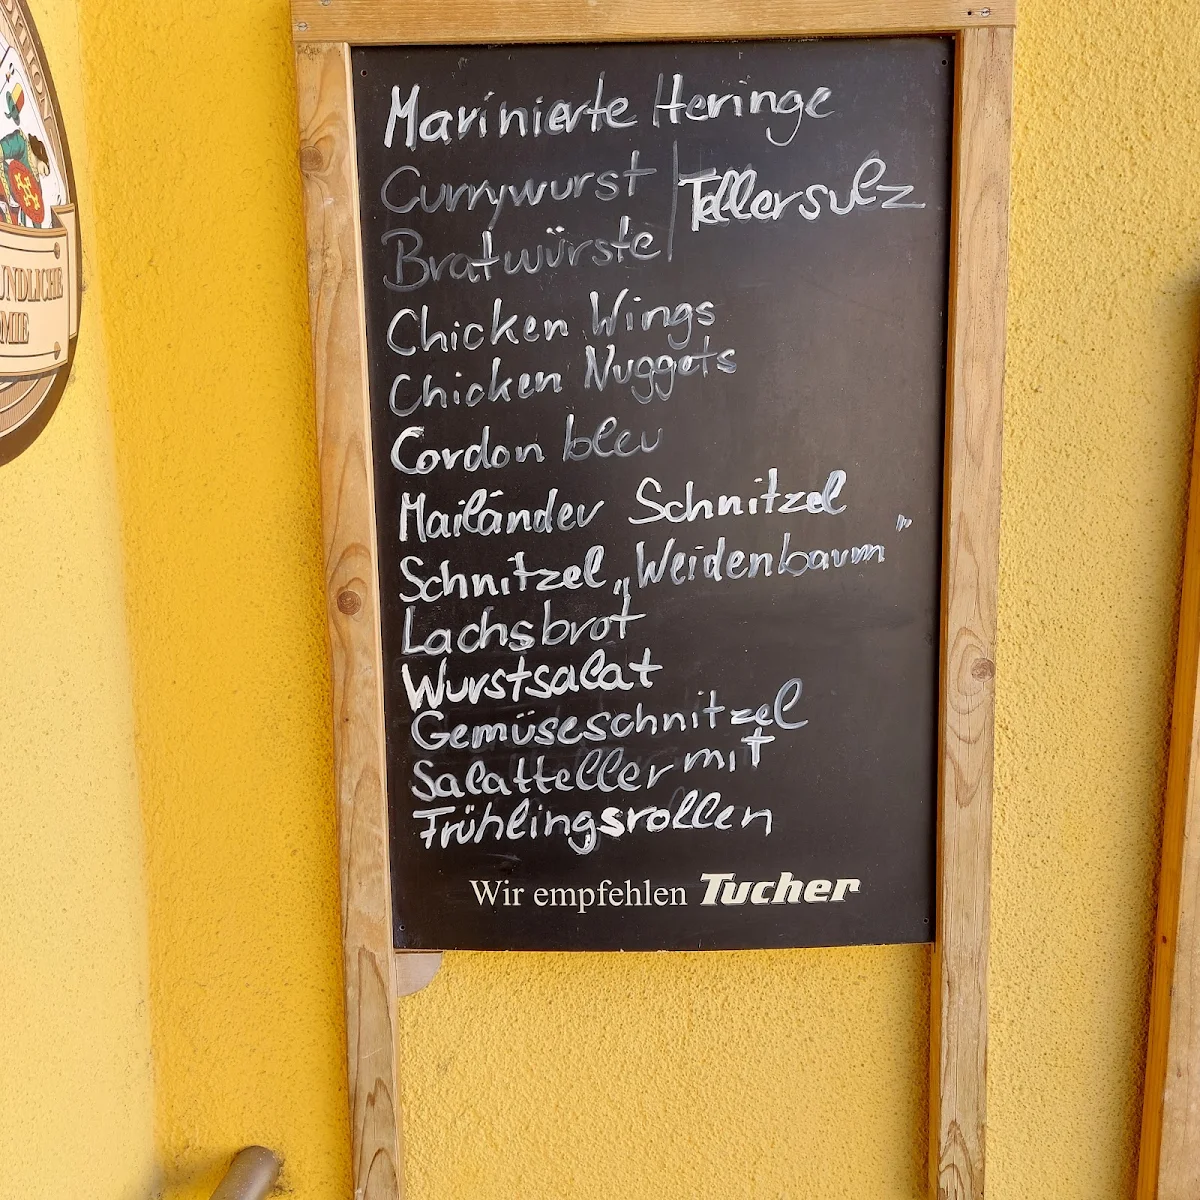 Marinierte Heringe
Currywurst
Tellersulz
Bratwürste
Chicken Wings
Chicken Nuggets
Cordon bleu
Mailänder Schnitzel
Schnitzel „Weidenbaum"
Lachsbrot
Wurstsalat
Gemüseschnitzel
Salatteller mit
Frühlingsrollen
Wir empfehlen Tucher